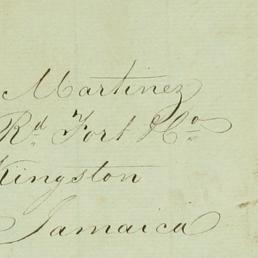 Martinez
Rd Fort & Co
Kingston
Jamaica